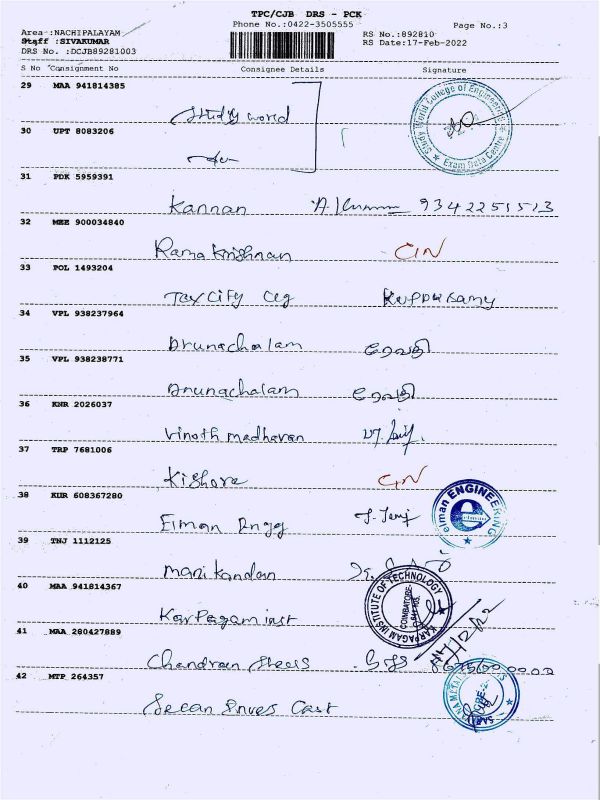 TPC/CJB DRS - PCK
Phone No.:0422-3505555
Page No.:3
Area :NACHIPALAYAM
Staff :SIVAKUMAR
DRS No. :DCJB89281003
RS No.:892810
RS Date:17-Feb-2022
S No Consignment No Consignee Details Signature
29 MAA 941814385
Study world
30 UPT 8083206
31 PDK 5959391
Kannan 9342251513
32 MEE 900034840
Rama Krishnan
33 POL 1493204
Tex City Ceg Kuppusamy
34 VPL 938237964
Arunachalam ரேவதி
35 VPL 938238771
Arunachalam ரேவதி
36 KNR 2026037
Vinoth madhavan
37 TRP 7681006
Kishore
38 KUR 608367280
Elman Engg
elman ENGINEERING
39 TNJ 1112125
Manikandan
40 MAA 941814367
Karpagam inst
KARPAGAM INSTITUTE OF TECHNOLOGY
COIMBATORE
41 MAA 280427889
Chandran Steels
42 MTP 264357
Study World College of Engineering
Exam Data Centre